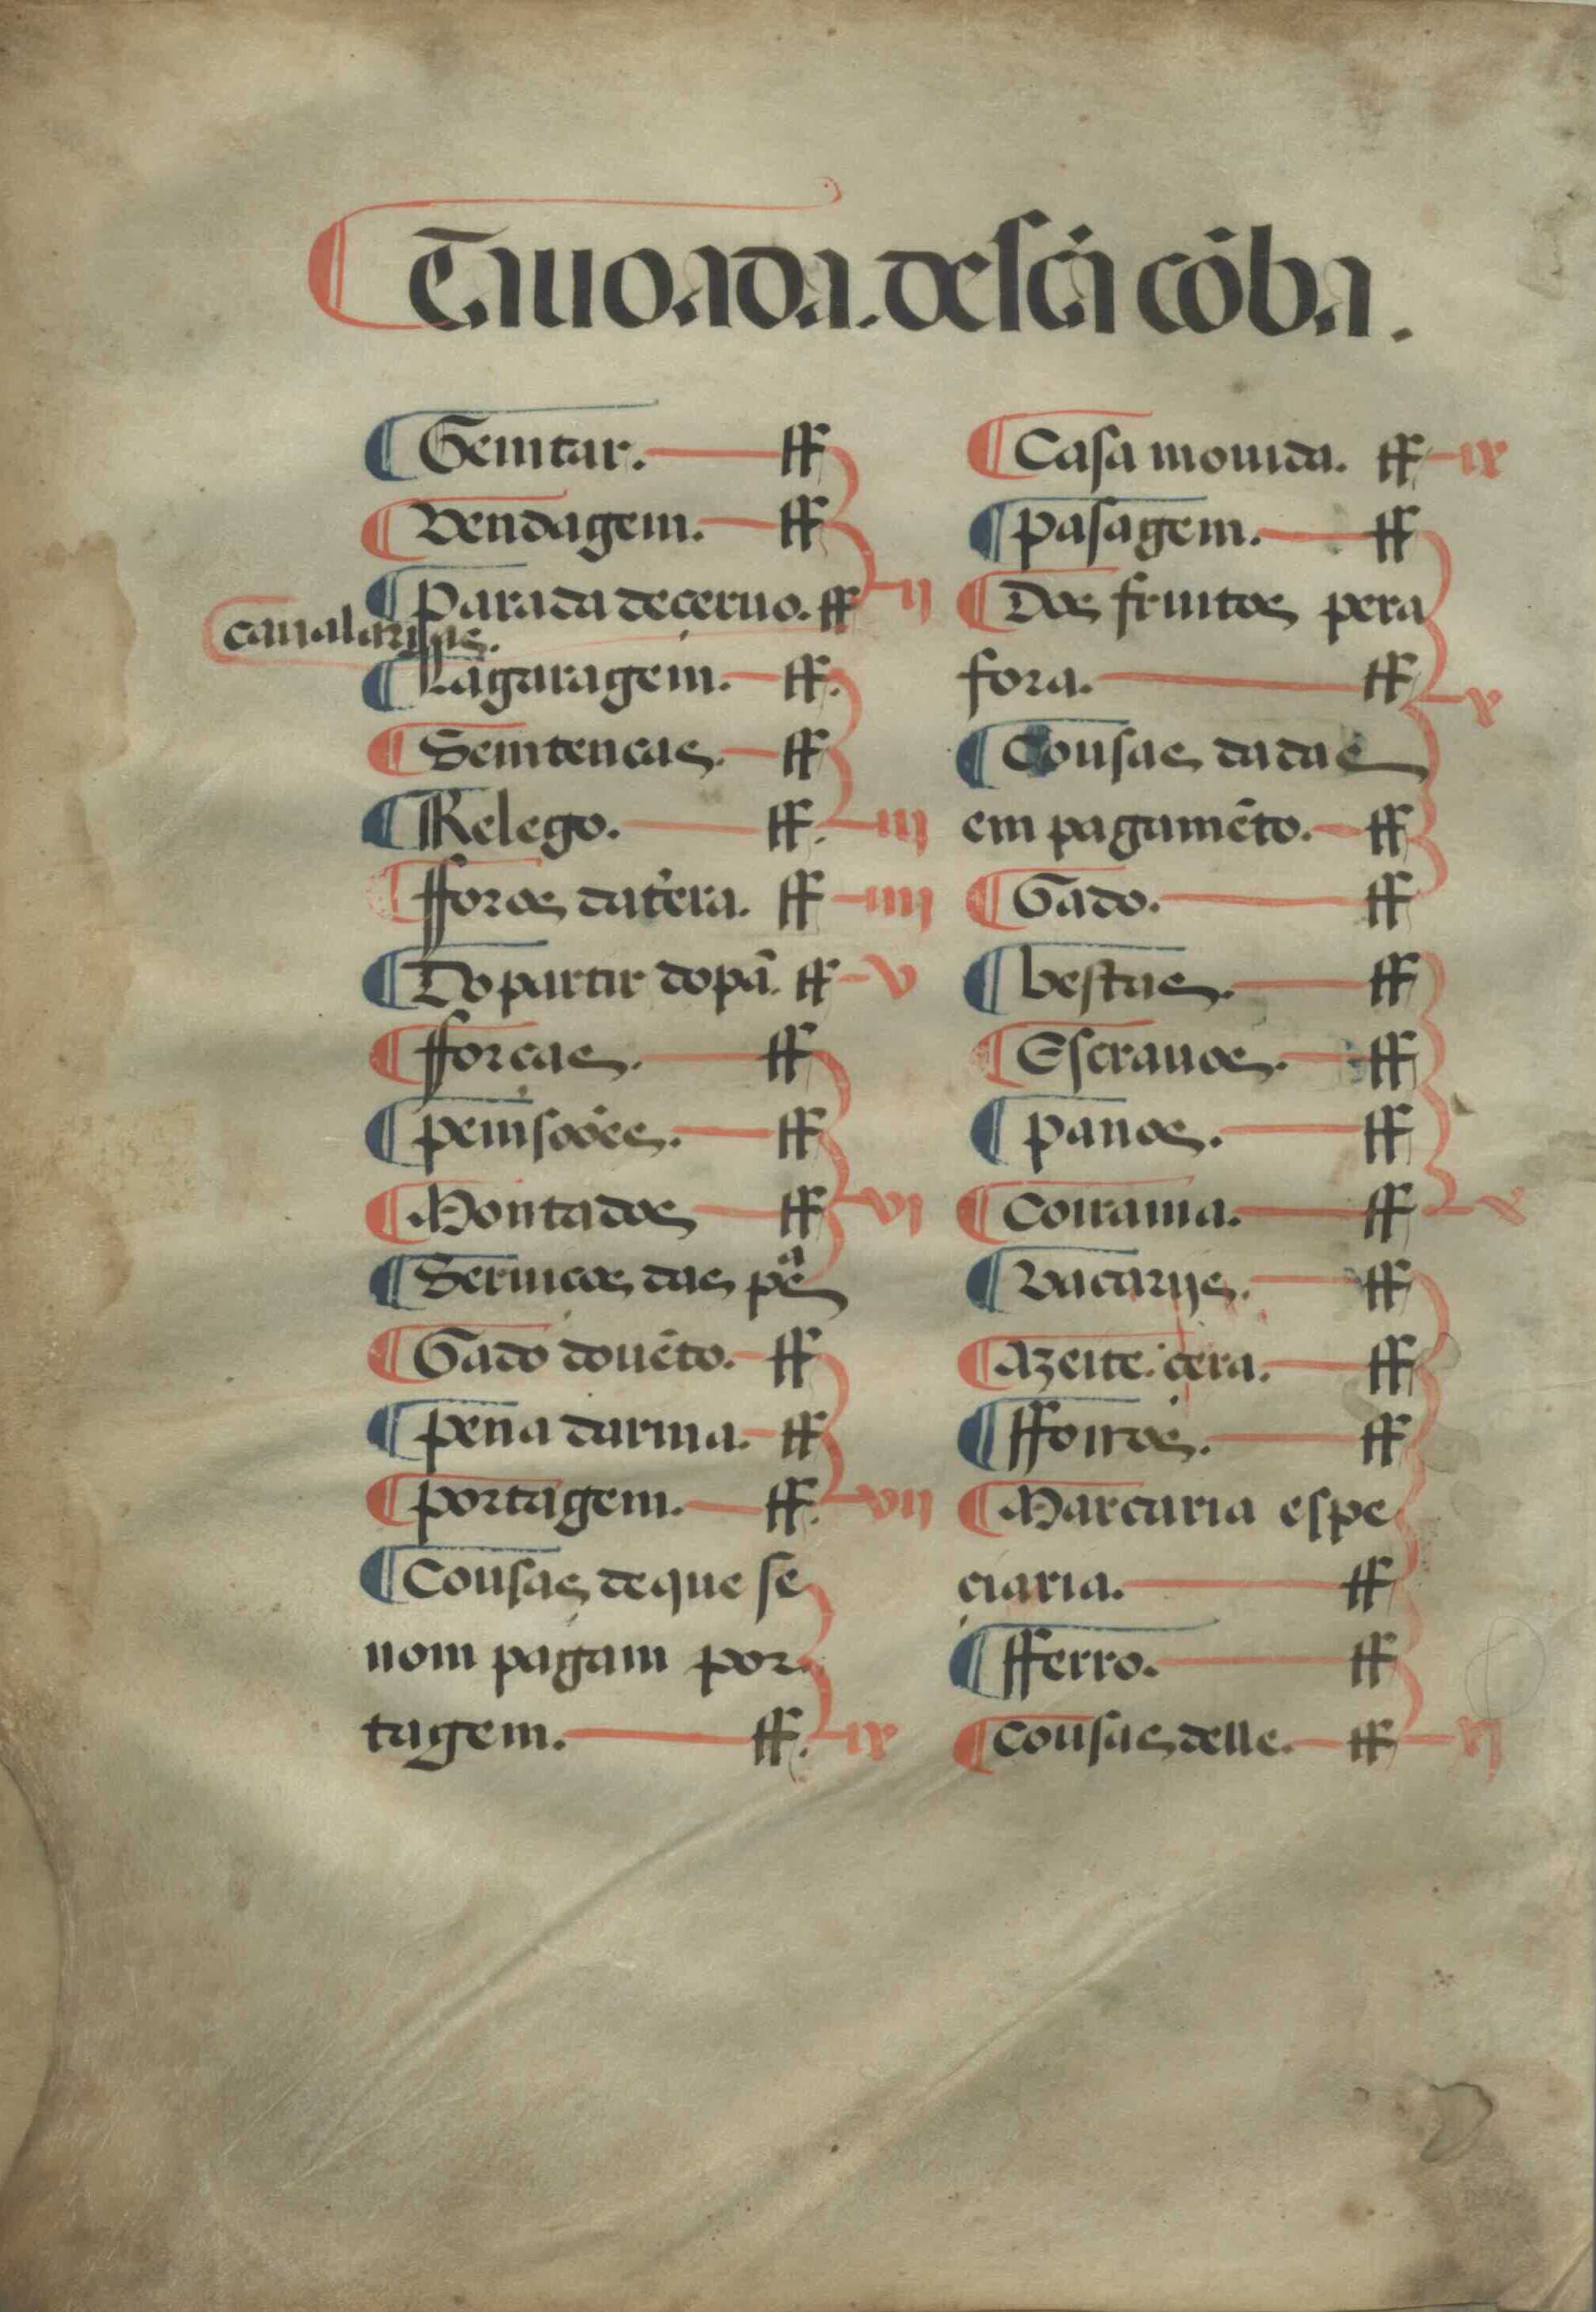 Tauoada. de scã cõba.
Gemtar. ff
Vendagem. ff
Parada de ceruo. ff ii
caualarijas.
Lagaragem. ff.
Semtencas. ff
Relego. ff. iii
fforos da tera. ff iiii
Do partir do pã. ff v
fforcas. ff
pemsoões. ff
Montados ff vi
Seruicos das pªs
Gado do uẽto. ff
pena darma. ff
portagem. ff. vii
Cousas de que se
nom pagam por
tagem. ff. ix
Casa mouida. ff ix
pasagem. ff
Dos fruitos pera
fora. ff x
Cousas dadas
em pagamẽto. ff
Gado. ff
bestas. ff
Escrauos. ff
panos. ff
Coirama. ff x
Vacarijs. ff
Azeite. cera. ff
fforros. ff
Marcaria espe
ciaria. ff
fferro. ff
Cousas delle. ff xi